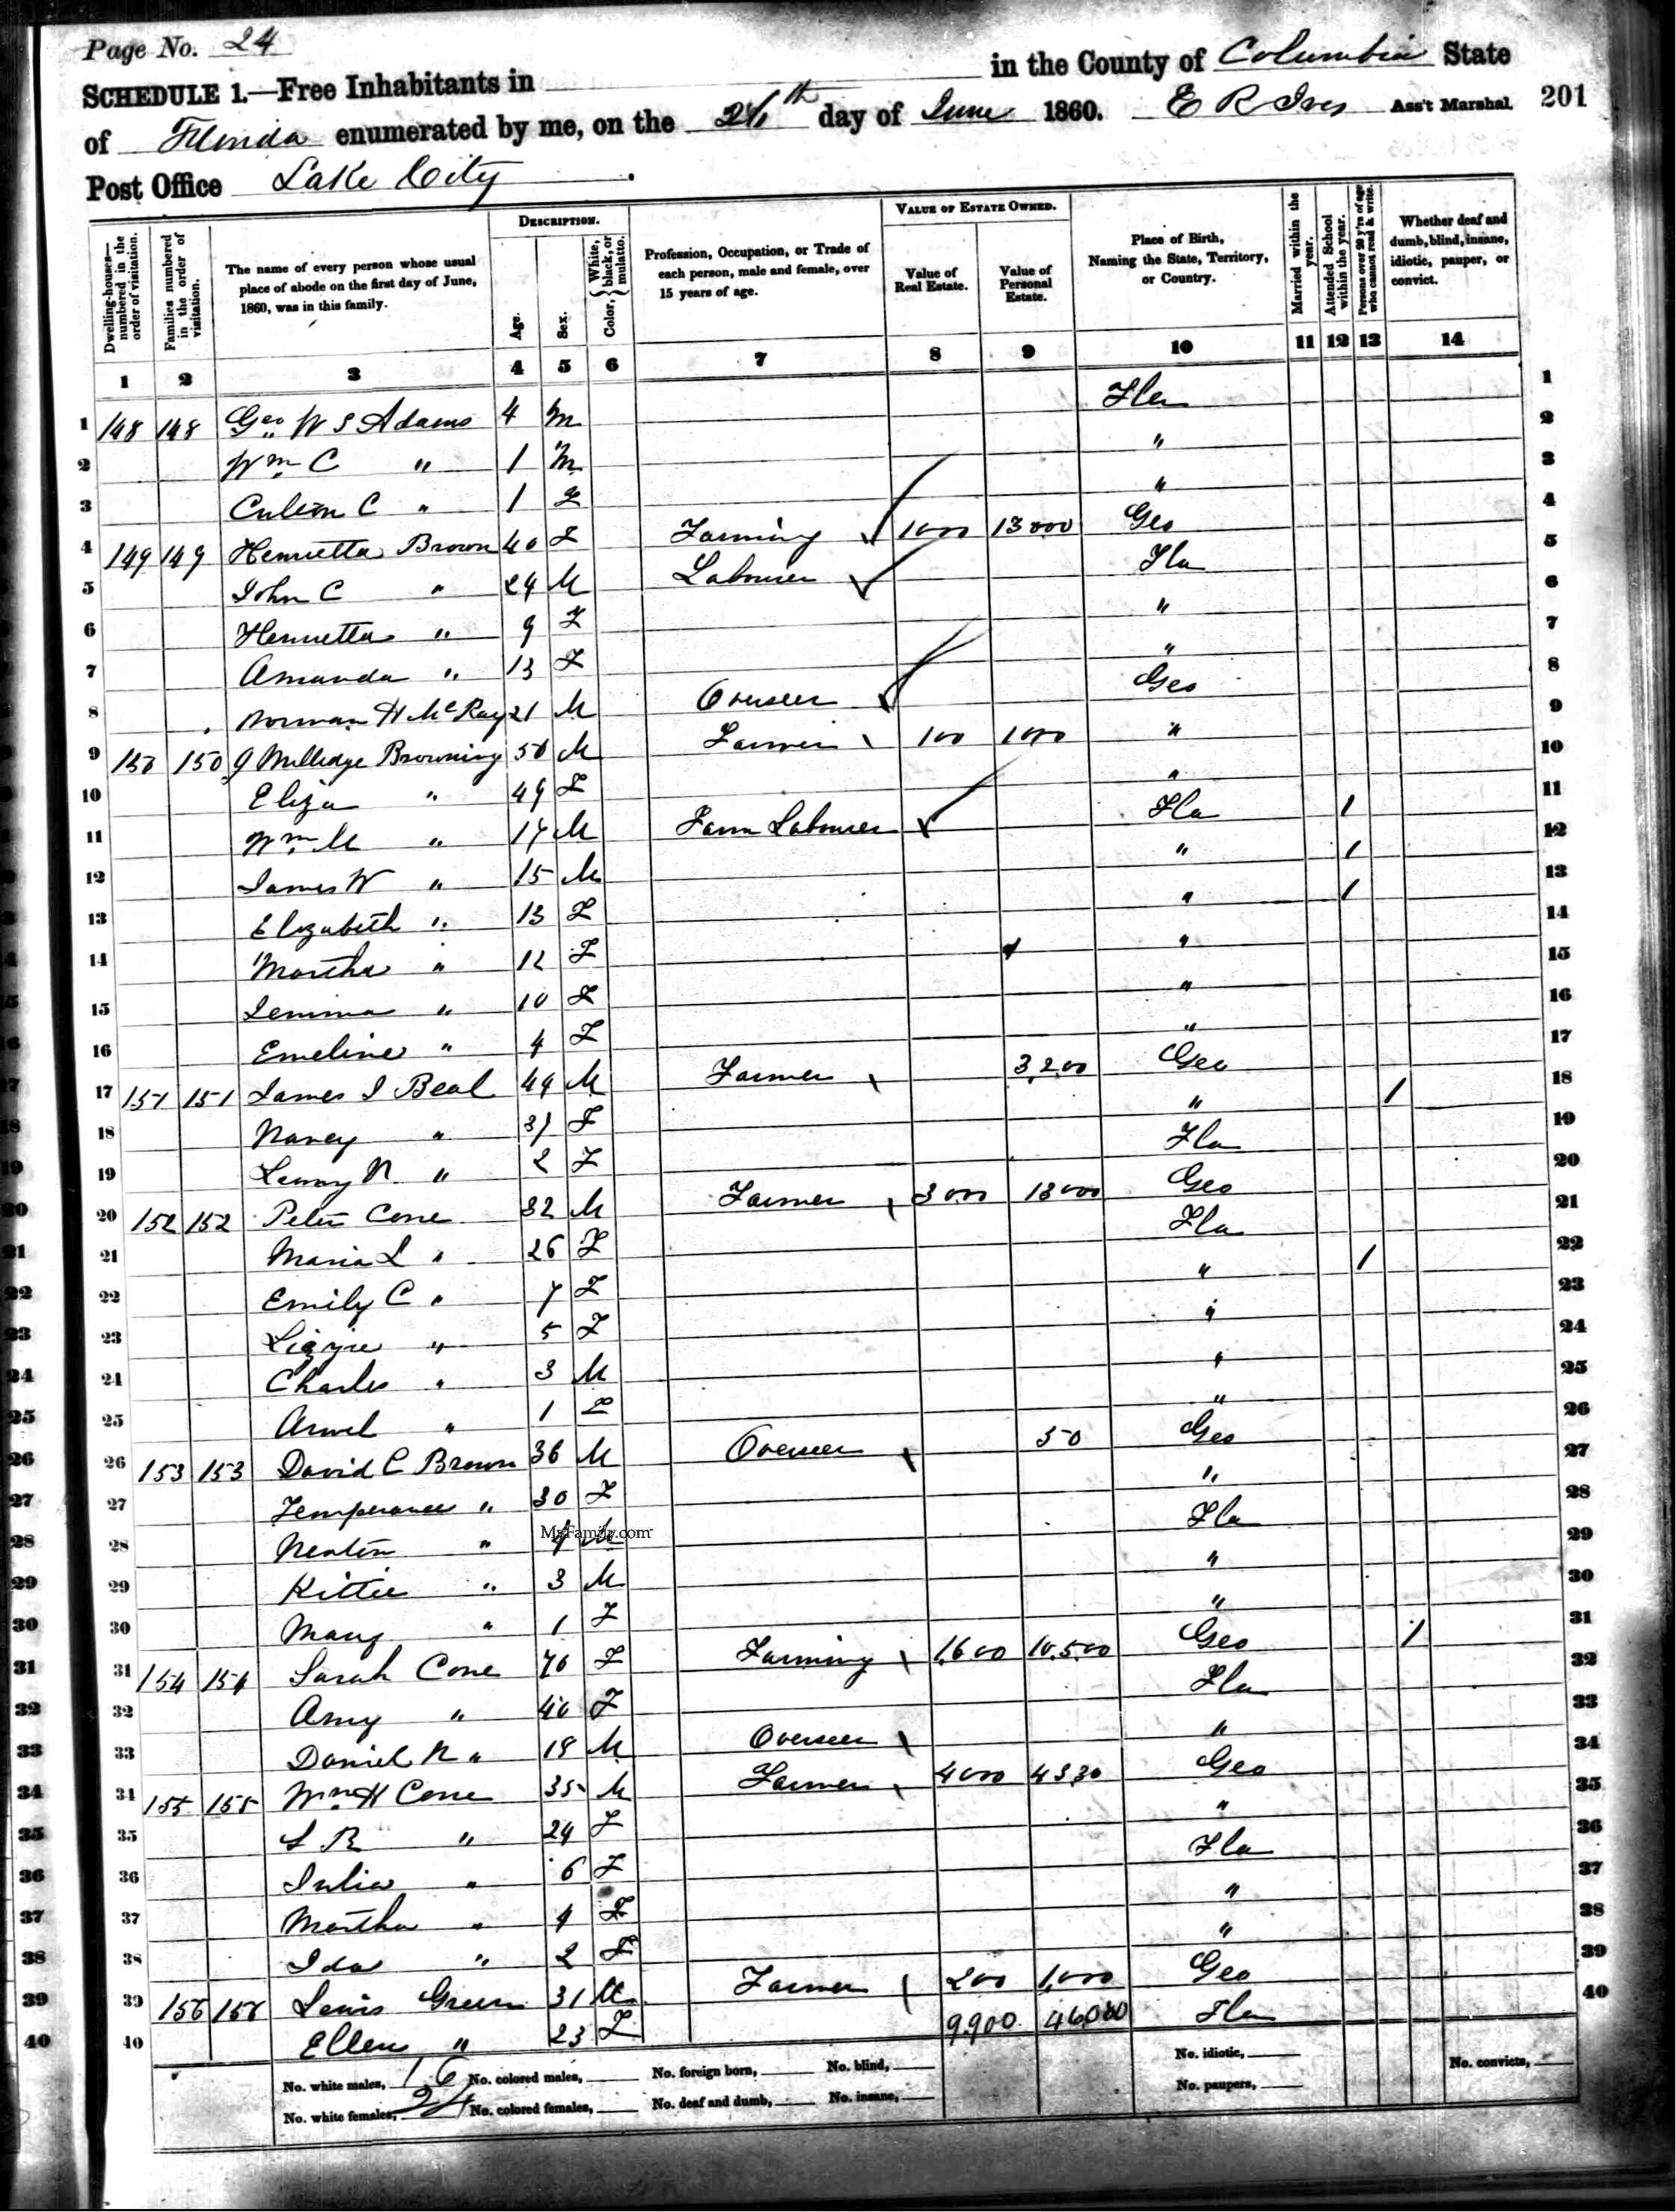 Page No. 24
SCHEDULE 1.—Free Inhabitants in in the County of Columbia State
of Florida enumerated by me, on the day of June 1860. E R Ives Ass't Marshal. 201
Post Office Lake City
Dwelling-houses—numbered in the order of visitation.
Families numbered in the order of visitation.
The name of every person whose usual place of abode on the first day of June, 1860, was in this family.
DESCRIPTION.
Age.
Sex.
Color, { White, black, or mulatto.
Profession, Occupation, or Trade of each person, male and female, over 15 years of age.
VALUE OF ESTATE OWNED.
Value of Real Estate.
Value of Personal Estate.
Place of Birth, Naming the State, Territory, or Country.
Married within the year.
Attended School within the year.
Persons over 20 y'rs of age who cannot read & write.
Whether deaf and dumb, blind, insane, idiotic, pauper, or convict.
1 2 3 4 5 6 7 8 9 10 11 12 13 14
1 148 148 Geo W S Adams 4 M Fla 1
2 Wm C " 1 M " 2
3 C " 1 F " 3
4 149 149 Henrietta Brown 40 F Farming 1000 13000 Geo 4
5 John C " 24 M Labourer Fla 5
6 Henrietta " 9 F " 6
7 Amanda " 13 F " 7
8 Norman H McRay 21 M Overseer Geo 8
9 150 150 J Milledge Browning 50 M Farmer 100 1000 " 9
10 Eliza " 49 F " 10
11 Wm M " 17 M Farm Labourer Fla 1 11
12 James W " 15 M " 1 12
13 Elizabeth " 13 F " 1 13
14 Martha " 12 F " 14
15 Jemima " 10 F " 15
16 Emeline " 4 F " 16
17 151 151 James J Beal 44 M Farmer 3,200 Geo 17
18 Nancy " 31 F " 1 18
19 N. " 2 F Fla 19
20 152 152 Peter Cone 32 M Farmer 3000 13000 Geo 20
21 Maria L " 26 F Fla 21
22 Emily C " 7 F " 1 22
23 Lizzie " 5 F " 23
24 Charles " 3 M " 24
25 " 1 F " 25
26 153 153 David C Brown 36 M Overseer 50 Geo 26
27 Temperance " 30 F " 27
28 Newton " M Fla 28
29 Kittie " 3 M " 29
30 Mary " 1 F " 30
31 154 154 Sarah Cone 70 F Farming 1,600 10,500 Geo 1 31
32 Amy " 40 F Fla 32
33 Daniel N " 19 M Overseer " 33
34 155 155 Wm H Cone 35 M Farmer 4000 4330 Geo 34
35 S B " 24 F " 35
36 Julia " 6 F Fla 36
37 Martha " 4 F " 37
38 Ida " 2 F " 38
39 156 156 Lewis Green 31 M Farmer 200 1,000 Geo 39
40 Ellen " 23 F 9,900 Fla 40
MyFamily.com
No. white males, 16 No. colored males, No. foreign born, No. blind, No. idiotic, No. convicts,
No. white females, 24 No. colored females, No. deaf and dumb, No. insane, No. paupers,